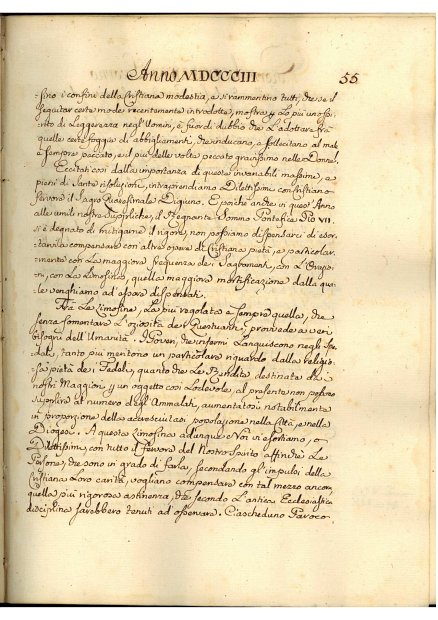 Anno MDCCCIII
55
fino i confini della Cristiana modestia, e si rammentino tutti, che se il
seguitar certe mode recentemente introdotte, mostra, per lo più uno spi-
rito di Leggerezza negl'Uomini, è fuor di dubbio che L'adottare frà
quelle certe foggie di abbigliamenti, che inducano, e sollecitano al male
è sempre peccato, ed il più delle volte peccato gravissimo nelle Donne.
Eccitati così dalla importanza di queste invariabili massime, e
pieni di Sante risoluzioni, intraprendiamo Dilettissimi con Cristiano
fervore il Sagro Quaresimale Digiuno. E poiche anche in quest'Anno
alle umili nostre Suppliche, il Regnante Sommo Pontefice Pio VII.
si è degnato di mitigarne il rigore, non possiamo dispensarci di esor-
tarvi a compensare con altre opere di Cristiana pietà, e particolar-
mente con La maggiora frequenza de' Sagramenti, con L'Orazio-
ni, con Le Limosine, quella maggiore mortificazione dalla qua-
le venghiamo ad essere dispensati.
Frà Le Limosine, La più regolata è sempre quella, che
senza fomentare L'oziosità de' Questuanti, provvede a veri
bisogni dell'Umanità. I Poveri, che infermi Languiscono negli Spe-
dali, tanto più meritono un particolare riguardo dalla religio-
sa pietà de' Fedeli, quanto che Le Rendite destinate da'
nostri Maggiori ad un oggetto così Lodevole, al presente non possono
supplire al numero degl'Ammalati, aumentatosi notabilmente
in proporzione della accresciutasi popolazione nella Città, e nella
Diogesi. A questa Limosina adunque Noi vi esortiamo, o
Dilettissimi, con tutto il fervore del Nostro Spirito affinchè Le
Persone, che sono in grado di farla, secondando gl'impulsi della
Cristiana Loro carità, vogliano compensare con tal mezzo ancora
quella più rigorosa astinenza, che secondo L'antica Ecclesiastica
disciplina sarebbero tenuti ad osservare. Ciascheduno Paroco